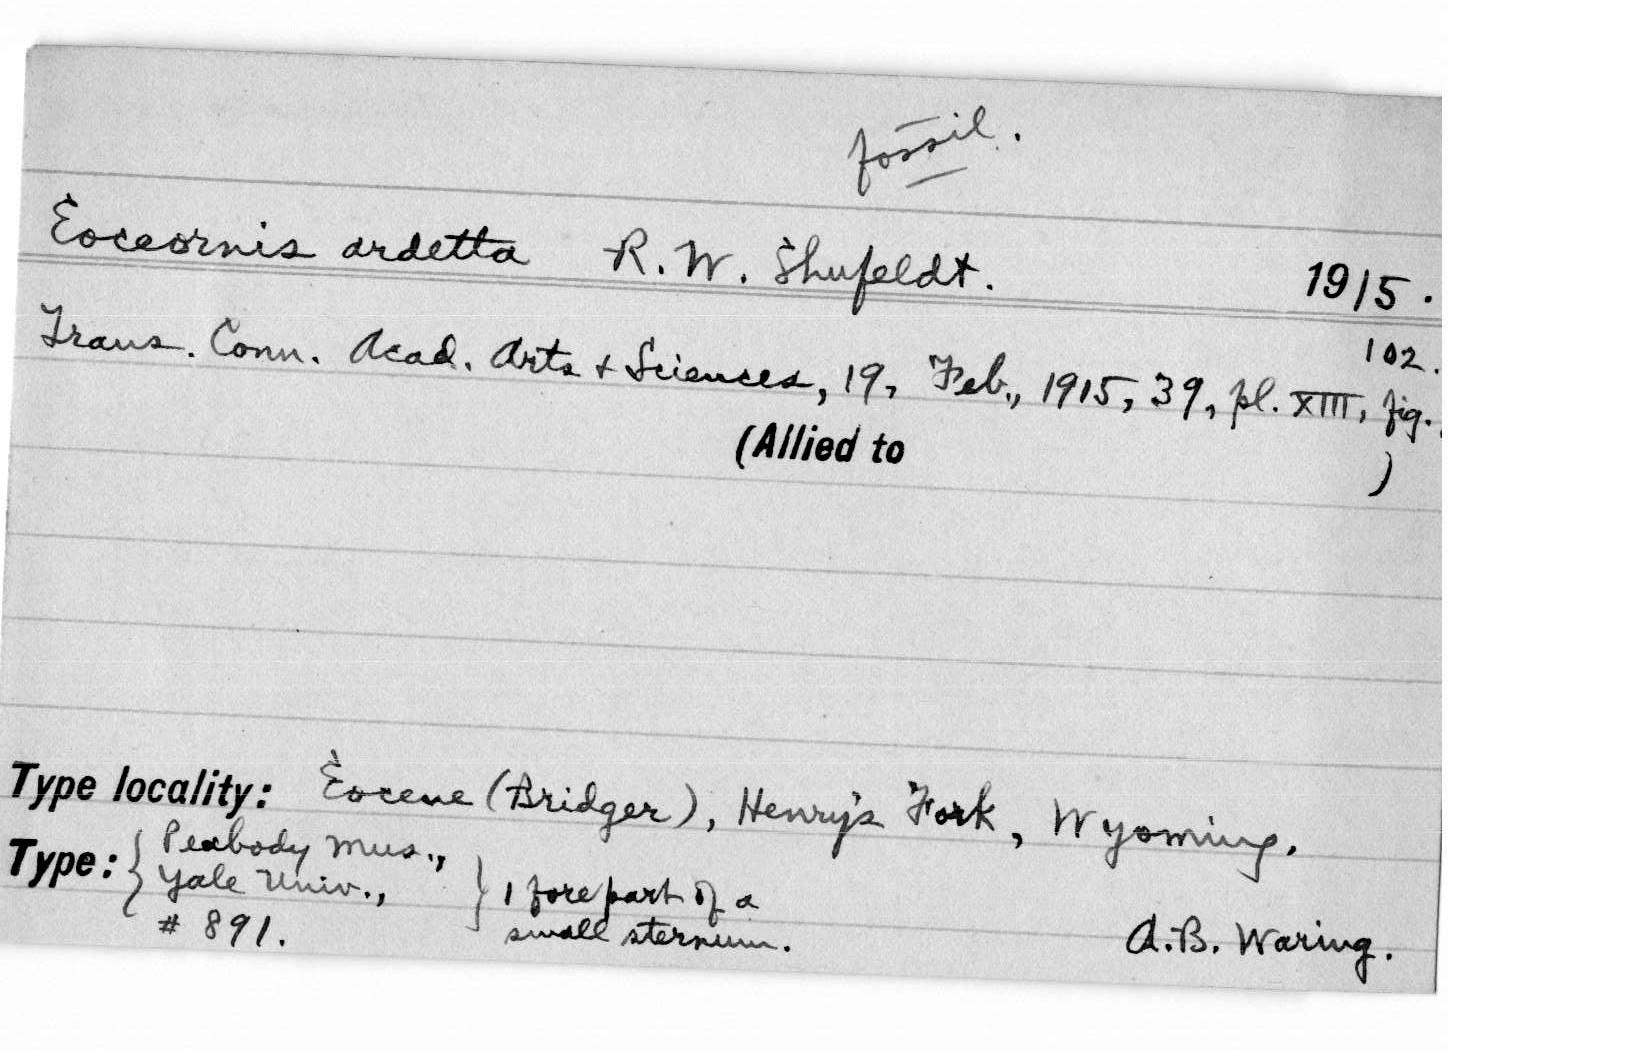 fossil.
Eoceornis ardetta R. W. Shufeldt. 1915.
102.
Trans. Conn. Acad. Arts + Sciences, 19, Feb., 1915, 39, pl. XIII, fig.
(Allied to )
Type locality: Eocene (Bridger), Henry's Fork, Wyoming.
Type: { Peabody Mus.,
Yale Univ., } 1 fore part of a
# 891. small sternum.
A. B. Waring.